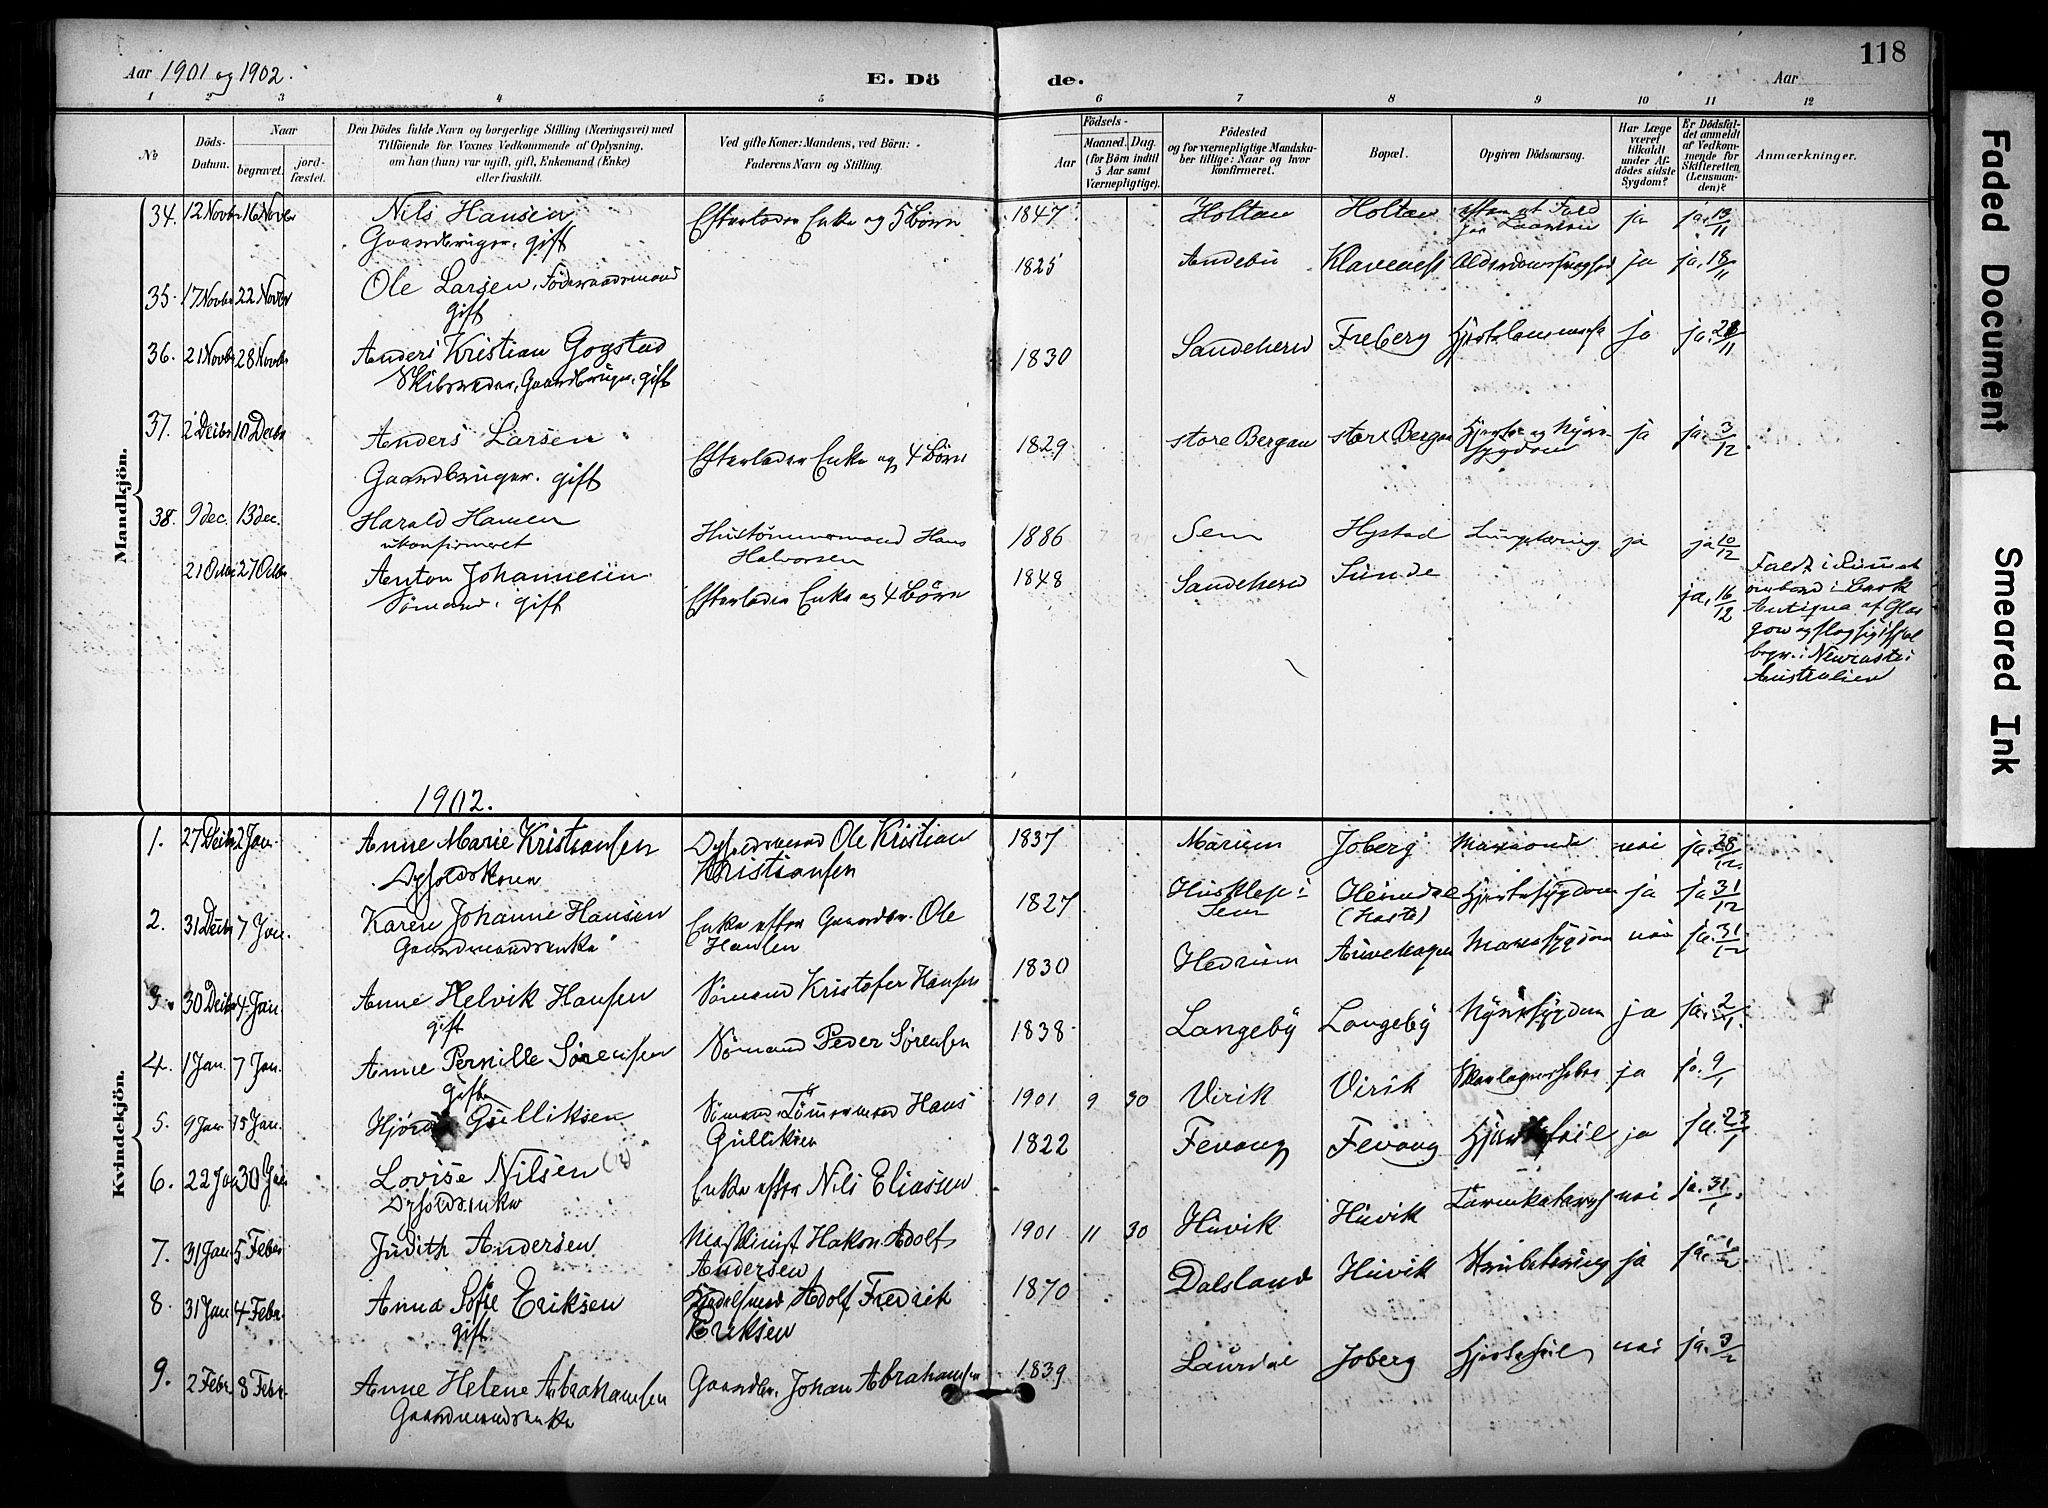 118
Aar 1901 og 1902.
E. Döde.
Aar
1 2 3 4 5 6 7 8 9 10 11 12
No
Döds-Datum.
Naar
begravet.
jordfæstet.
Den Dödes fulde Navn og borgerlige Stilling (Næringsvei) med
Tilföiende for Voxnes Vedkommende af Oplysning,
om han (hun) var ugift, gift, Enkemand (Enke)
eller fraskilt.
Ved gifte Koner: Mandens, ved Börn:
Faderens Navn og Stilling.
Födsels-
Aar
Maaned. Dag.
(for Börn indtil
5 Aar samt
Værnepligtige).
Födested
og for værnepligtige Mandskaber tillige: Naar og hvor
konfirmeret.
Bopæl.
Opgiven Dödsaarsag.
Har Læge
været
tilkaldt
under Afdödes sidste
Sygdom?
Er Dödsfaldet anmeldt
af Vedkommende for
Skifteretten
(Lensmanden)?
Anmærkninger.
Mandkjön.
34. 12 Novbr 16 Novbr Nils Hansen Efterlader Enke og 5 Börn 1847 Holtan Holtan ja ja. 13/11
Gaardbruger. gift
35. 17 Novbr 22 Novbr Ole Larsen, Föderaadsmand 1825 Andebu Klaveness ja ja. 18/11
gift
36. 21 Novbr 28 Novbr Anders Kristian Gogstad 1830 Sandeherd Freberg ja ja.
Skibsreder, Gaardbruger. gift
37. 2 Decbr 10 Decbr Anders Larsen Efterlader Enke og 4 Börn 1829 store Bergan store Bergan Hjerte og Nyresygdom ja ja. 3/12
Gaardbruger. gift
38. 9 dec. 13 dec. Harald Hansen Hustømmermand Hans Halvorsen 1886 Sem Hystad Lungetæring ja ja 10/12
ukonfirmeret
Anton Johannesen Efterlader Enke og 4 Börn 1848 Sandeherd Sunde ja, 16/12
Sømand. gift
ombord i Bark
Antigua af Glasgow og
begr. i Newcastle i
Australien
1902.
Kvindekjön.
1. 27 Decbr 2 Jan. Anne Marie Kristiansen Ole Kristian Kristiansen 1837 Joberg nei ja. 28/12
2. 31 Decbr 7 Jan. Karen Johanne Hansen Enke efter Gaardbr. Ole Hansen 1827 i Sem Heimdal Hjertesygdom ja ja 31/12
Gaardmandsenke
3. 30 Decbr 4 Jan. Anne Helvik Hansen Sømand Kristofer Hansen 1830 Hedrum Mavesygdom nei ja. 31/12
gift
4. 1 Jan. 7 Jan. Anne Pernille Sørensen Sømand Peder Sørensen 1838 Langeby Langeby Nyresygdom ja ja. 2/1.
gift
5. 9 Jan. 15 Jan. Gulliksen Sømand, Tømmermand Hans Gulliksen 1901 9 30 Virik Virik Skarlagensfeber ja ja. 9/1
6. 22 Jan 30 Jan Lovise Nilsen Enke efter Nils Eliassen 1822 Fevang Fevang Hjertefeil ja ja. 23/1
7. 31 Jan 5 Febr Judith Andersen Maskinist Hakon Adolf Andersen 1901 11 30 Huvik Huvik Tarmkatarrh nei ja. 31/1
8. 31 Jan 4 Febr. Anna Sofie Eriksen Adolf Fredrik Eriksen 1870 Dalsland Huvik Strubetæring ja ja. 1/2
gift
9. 2 Febr. 8 Febr. Anne Helene Abrahamsen Gaardbr. Johan Abrahamsen 1839 Laurdal Joberg Hjertefeil nei ja. 3/2
Gaardmandsenke
Faded Document
Smeared Ink